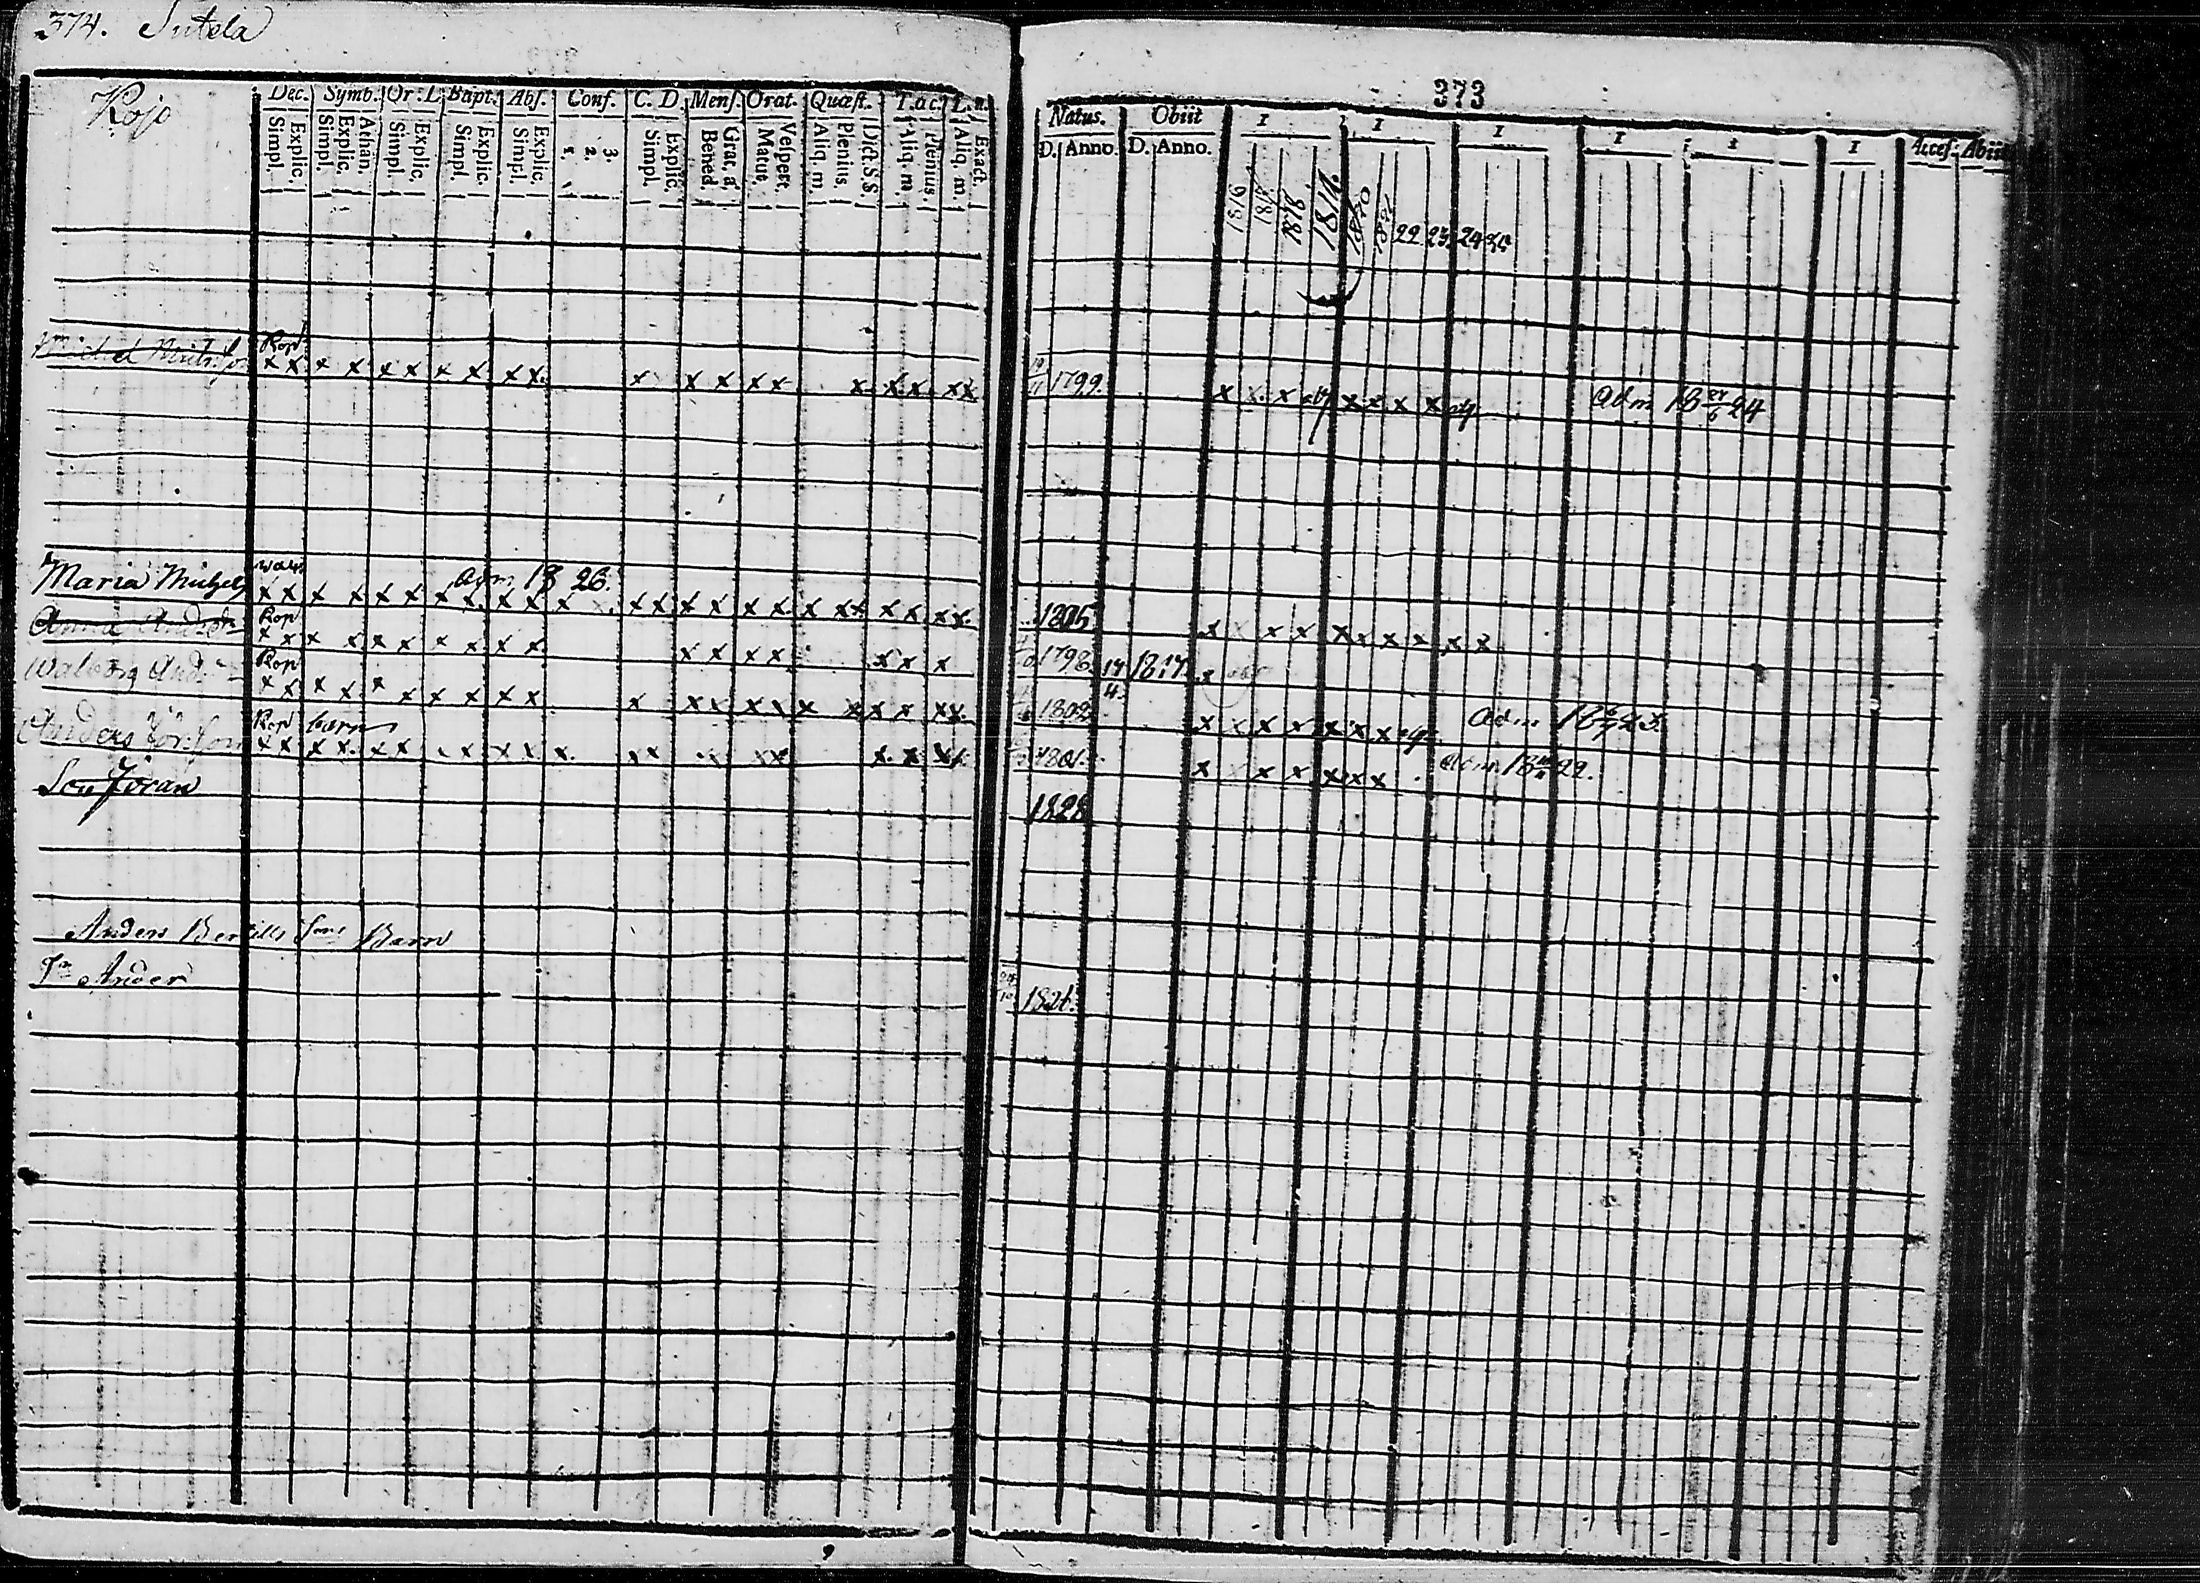 374. Sutela
373
Kojo
Dec. Symb. Or. L. Bapt. Abs. Conf. C. D. Mens. Orat. Quæst. T. ac. L. n.
Simpl. Explic. Simpl. Explic. Athan. Simpl. Explic. Simpl. Explic. Simpl. Explic. 1. 2. 3. Simpl. Explic. Bened. Grat. a. Matut. Vespert. Aliq. m. Plenius. Dict. S. S. Aliq. m. Plenius. Aliq. m. Exact.
Natus. Obiit 1 1 1 1 1 1 Acces. Abiit
D. Anno. D. Anno.
1816 1817 1818 1819 1820 1821 22 23 24 25
Michel Matsson Kop x x x x x x x x x x x x x x x x x x x x 1799. x x x x x x x Adm 18 24
Maria Michels adm 18 26. x x x x x x x x x x x x x x x x x x x x x x x x 1805 x x x x x x x x x x
Anna Anders Kop x x x x x x x x x x x x x x x x x 1798 17/4 1817. x
Walborg Anders Kop x x x x x x x x x x x x x x x x x x x x x 1802 x x x x x x x Adm 18 23.
Anders Jöransson Kop barn x x x x x x x x x x x x x x x x x x x x 1801. x x x x x x x Adm 18 22.
Son Jöran 1828
Anders Bertills Sons Barn
Sn Ander 1821.